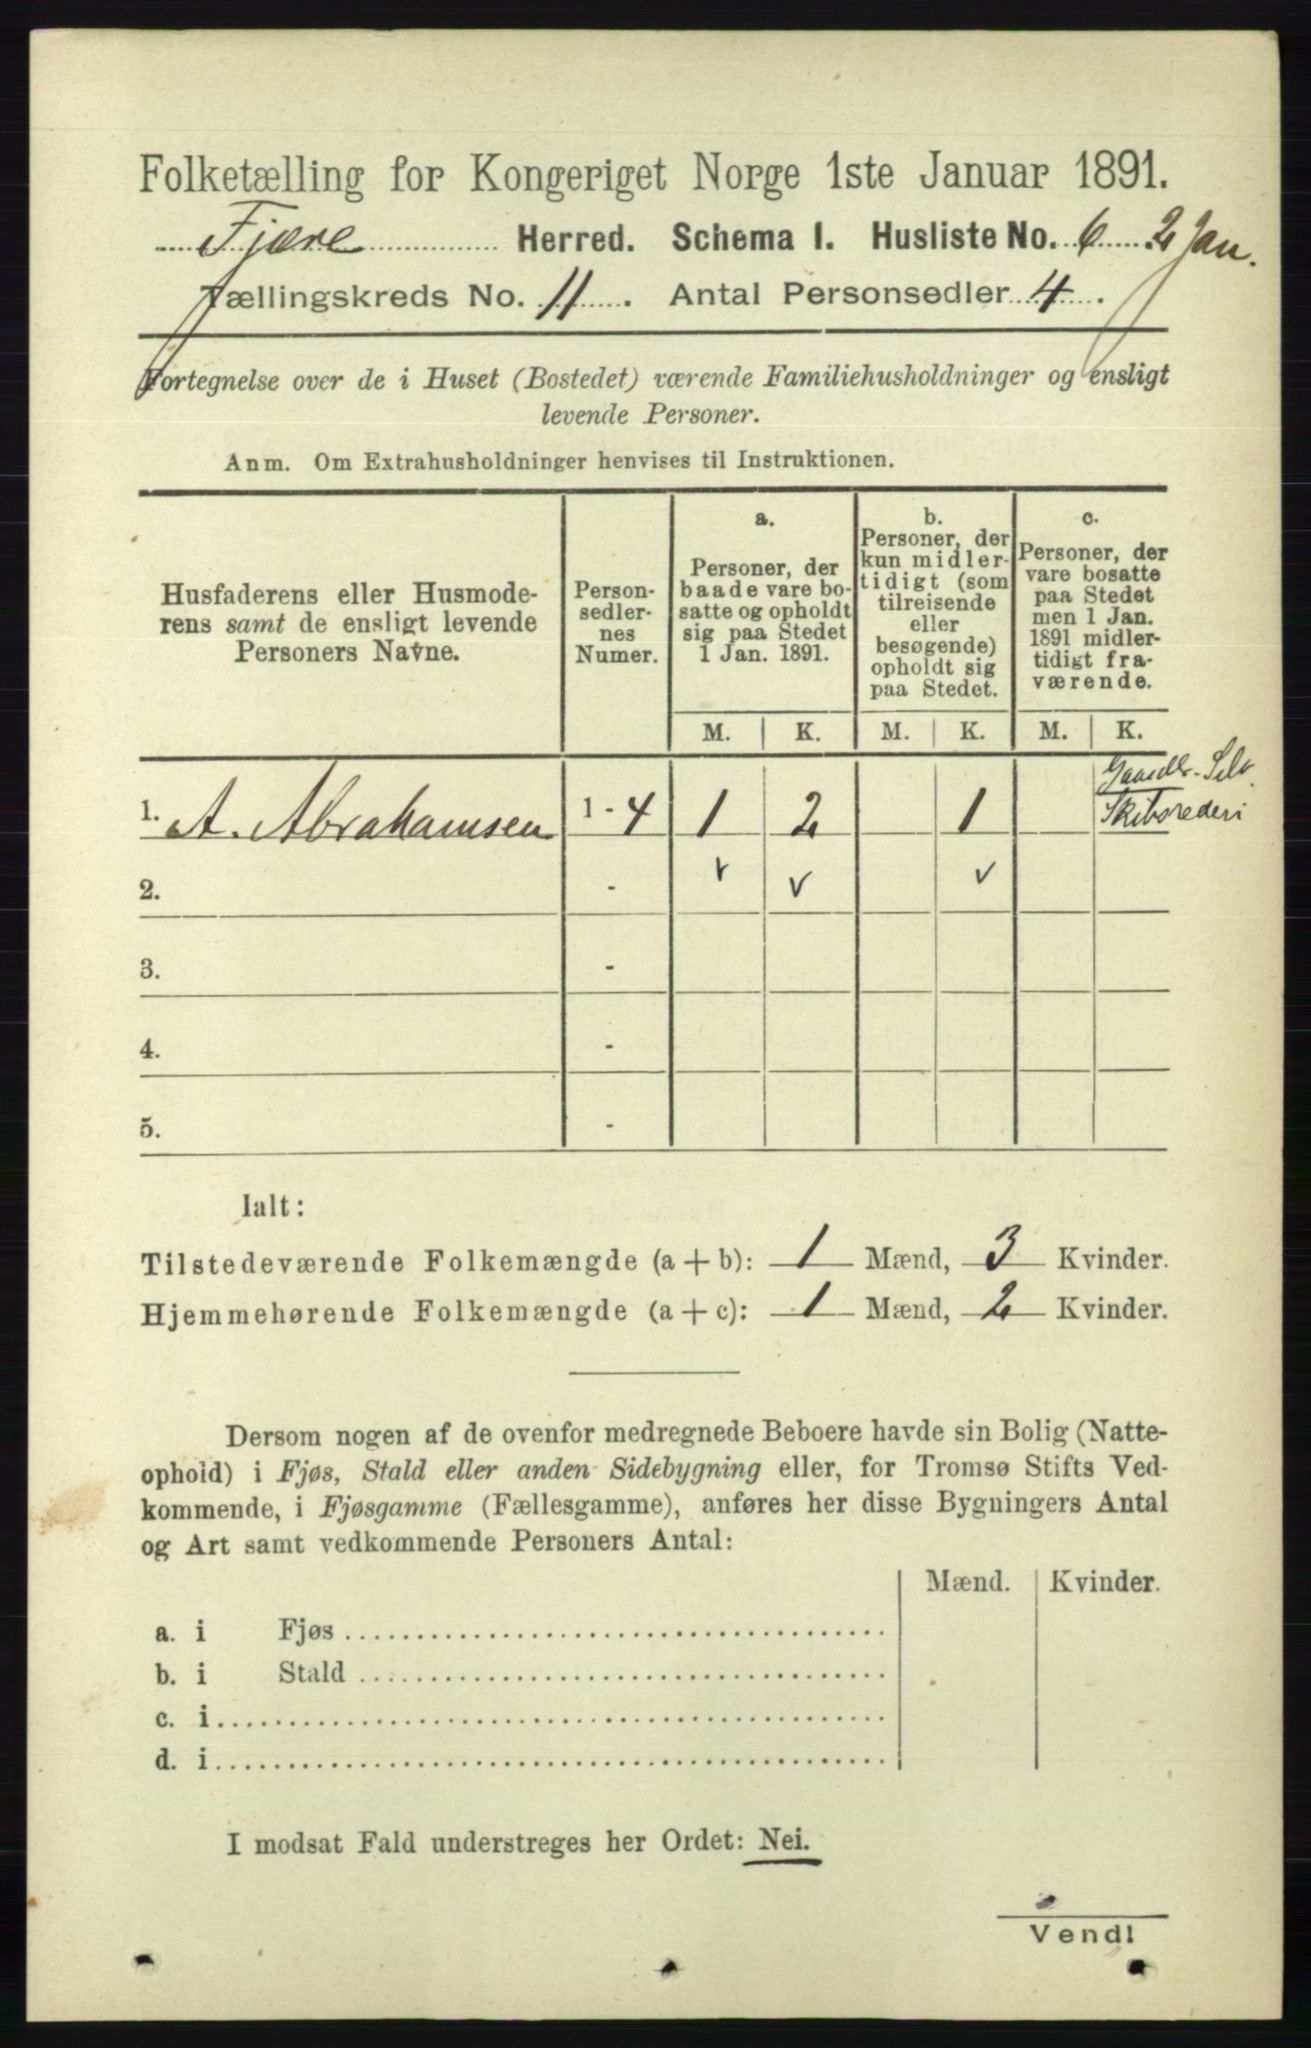 Folketælling for Kongeriget Norge 1ste Januar 1891.
Fjære Herred. Schema I. Husliste No. 6 2 Jan.
Tællingskreds No. 11. Antal Personsedler 4.
Fortegnelse over de i Huset (Bostedet) værende Familiehusholdninger og ensligt
levende Personer.
Anm. Om Extrahusholdninger henvises til Instruktionen.
Husfaderens eller Husmode-
rens samt de ensligt levende
Personers Navne.
Person-
sedler-
nes
Numer.
a.
Personer, der
baade vare bo-
satte og opholdt
sig paa Stedet
1 Jan. 1891.
b.
Personer, der
kun midler-
tidigt (som
tilreisende
eller
besøgende)
opholdt sig
paa Stedet.
c.
Personer, der
vare bosatte
paa Stedet
men 1 Jan.
1891 midler-
tidigt fra-
værende.
M. K. M. K. M. K.
1. A. Abrahamsen 1 - 4 1 2 1
Skibsrederi
2. -
3. -
4. -
5. -
Ialt:
Tilstedeværende Folkemængde (a + b): 1 Mænd, 3 Kvinder.
Hjemmehørende Folkemængde (a + c): 1 Mænd, 2 Kvinder.
Dersom nogen af de ovenfor medregnede Beboere havde sin Bolig (Natte-
ophold) i Fjøs, Stald eller anden Sidebygning eller, for Tromsø Stifts Ved-
kommende, i Fjøsgamme (Fællesgamme), anføres her disse Bygningers Antal
og Art samt vedkommende Personers Antal:
Mænd. Kvinder.
a. i Fjøs
b. i Stald
c. i
d. i
I modsat Fald understreges her Ordet: Nei.
Vend!